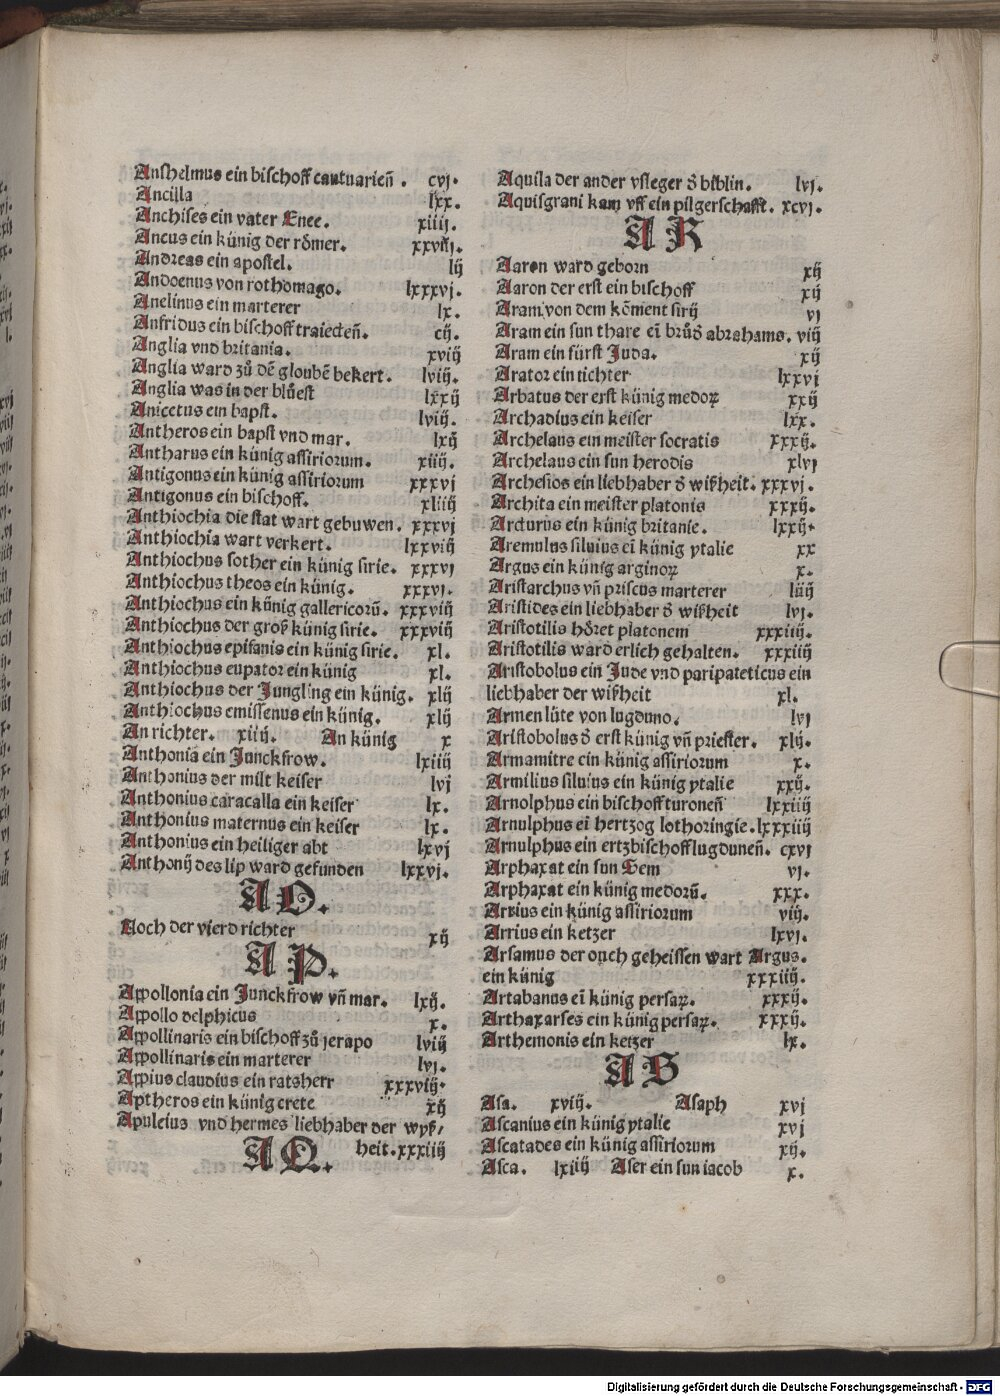 Anshelmus ein bischoff cantuarieñ . cvj.
Ancilla lxx.
Anchises ein vater Enee. xiiij.
Ancus ein künig der rőmer. xxviij.
Andreas ein apostel. lij
Andoenus von rothomago. lxxxvj.
Anelinus ein marterer lx.
Anfridus ein bischoff traiecteñ. cij.
Anglia vnd britania. xviij
Anglia ward zů dē gloubē bekert. lviij.
Anglia was in der blůest lxxij
Anicetus ein bapst. lviij.
Antheros ein bapst vnd mar. lxij
Antharus ein künig assiriorum. xiij.
Antigonus ein künig assiriorum xxxvj
Antigonus ein bischoff. xliij
Anthiochia die stat wart gebuwen. xxxvj
Anthiochia wart verkert. lxxviij
Anthiochus sother ein künig sirie. xxxvj
Anthiochus theos ein künig. xxxvj.
Anthiochus ein künig gallericorū. xxxviij
Anthiochus der groß künig sirie. xxxviij
Anthiochus epifanis ein künig sirie. xl.
Anthiochus eupator ein künig xl.
Anthiochus der Jungling ein künig. xlij
Anthiochus emissenus ein künig. xlij
An richter. xiij. An künig x
Anthonia ein Junckfrow. lxiij
Anthonius der milt keiser lvj
Anthonius caracalla ein keiser lx.
Anthonius maternus ein keiser lx.
Anthonius ein heiliger abt lxvj
Anthonij des lip ward gefunden lxxvj.
AO.
Aoch der vierd richter xij
AP.
Appollonia ein Junckfrow vñ mar. lxij.
Appollo delphicus x.
Appollinaris ein bischoff zů jerapo lviij
Appollinaris ein marterer lvj.
Appius claudius ein ratsherr xxxviij.
Aptheros ein künig crete xij
Apuleius vnd hermes liebhaber der wyß/
heit. xxxiij
AQ.
Aquila der ander vsleger ð biblin. lvj.
Aquisgrani kam vff ein pilgerschafft. xcvj.
AR
Aaron ward geborn xij
Aaron der erst ein bischoff xij
Aram von dem kōment sirij vj
Aram ein sun thare eī brůð abrahams. viij
Aram ein fürst Juda. xij
Arator ein tichter lxxvj
Arbatus der erst künig medoꝝ xxij
Archadius ein keiser lxx.
Archelaus ein meister socratis xxxij.
Archelaus ein sun herodis xlvj
Archesios ein liebhaber ð wißheit. xxxvj.
Archita ein meister platonis xxxij.
Arcturus ein künig britanie. lxxij.
Aremulus siluius eī künig ytalie xx
Argus ein künig arginoꝝ x.
Aristarchus vñ priscus marterer liij
Aristides ein liebhaber ð wißheit lvj.
Aristotilis hőret platonem xxxiij.
Aristotilis ward erlich gehalten. xxxiij
Aristobolus ein Jude vnd paripateticus ein
liebhaber der wißheit xl.
Armen lüte von lugduno. lvj
Aristobolus ð erst künig vñ priester. xlij.
Armamitre ein künig assiriorum x.
Armilius siluius ein künig ytalie xxij.
Arnolphus ein bischoff turoneñ lxxiij
Arnulphus eī hertzog lothoringie. lxxxiij
Arnulphus ein ertzbischoff lugduneñ. cxvj
Arphaxat ein sun Sem vj.
Arphaxat ein künig medorū. xxx.
Arrius ein künig assiriorum viij.
Arrius ein ketzer lxvj.
Arsamus der ouch geheissen wart Argus.
ein künig xxxiij.
Artabanus eī künig persaꝝ. xxxij.
Arthaxarses ein künig persaꝝ. xxxij.
Arthemonis ein ketzer lx.
AS
Asa. xviij. Asaph xvj
Ascanius ein künig ytalie xvj
Ascatades ein künig assiriorum xij.
Asca. lxiij Aser ein sun iacob x.
Digitalisierung gefördert durch die Deutsche Forschungsgemeinschaft - DFG